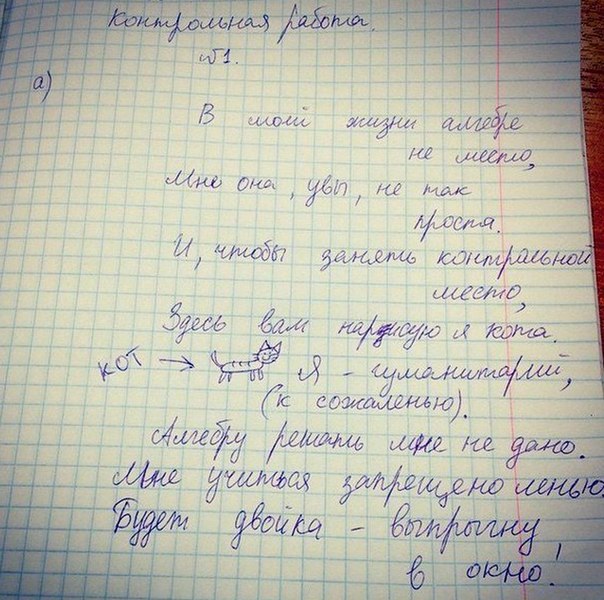 Контрольная работа.
№1.
а)
В моей жизни алгебре
не место,
Мне она, увы, не так
проста.
И, чтобы занять контрольной
место,
Здесь вам нарисую я кота.
кот → Я – гуманитарий,
(к сожаленью).
Алгебру решать мне не дано.
Мне учиться запрещено ленью
Будет двойка – выпрыгну
в окно!